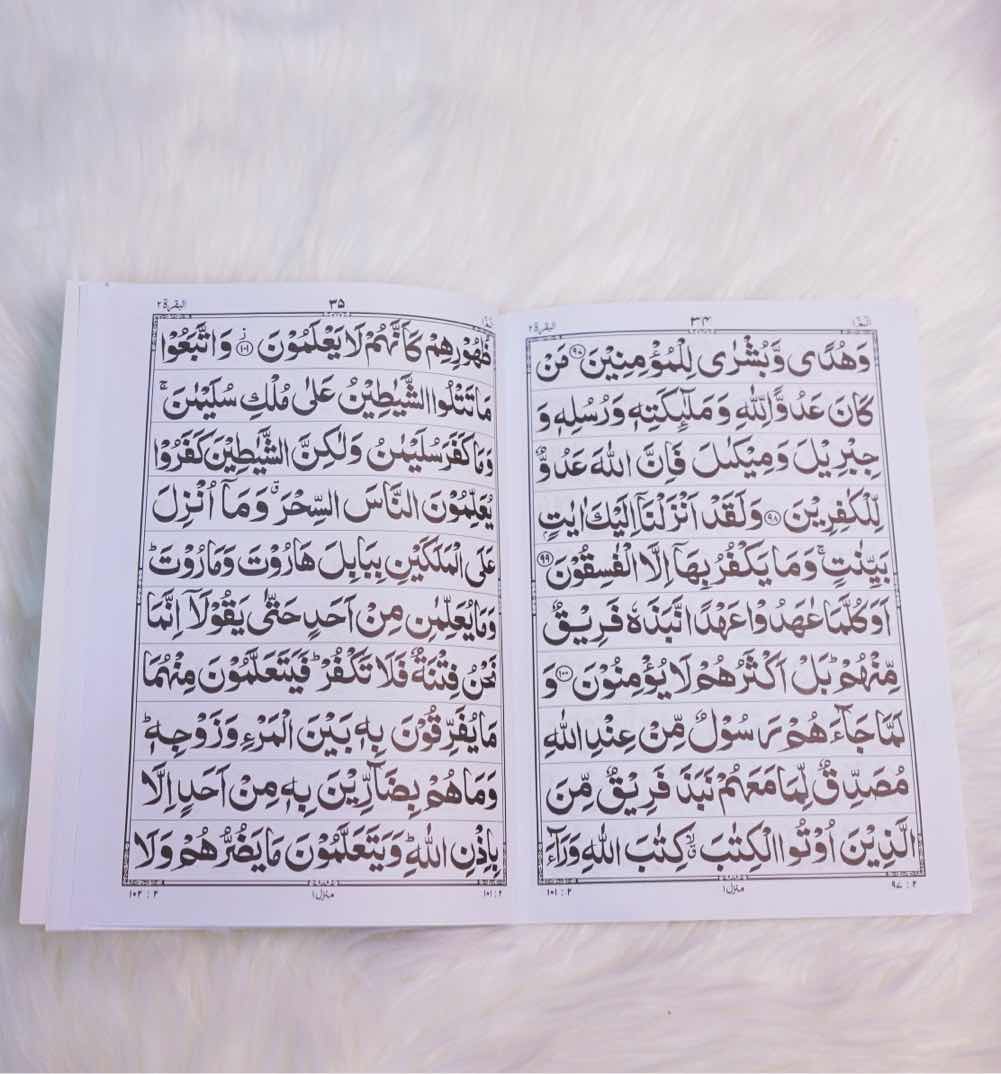 البقرة ٢
٣٤
الٓمّٓ ١
وَهُدًى وَّبُشْرٰى لِلْمُؤْمِنِيْنَ ۝٩٧ مَنْ
كَانَ عَدُوًّا لِّلّٰهِ وَمَلٰٓئِكَتِهٖ وَرُسُلِهٖ وَ
جِبْرِيْلَ وَمِيْكٰىلَ فَاِنَّ اللّٰهَ عَدُوٌّ
لِّلْكٰفِرِيْنَ ۝٩٨ وَلَقَدْ اَنْزَلْنَاۤ اِلَيْكَ اٰيٰتٍۭ
بَيِّنٰتٍ ۚ وَمَا يَكْفُرُ بِهَاۤ اِلَّا الْفٰسِقُوْنَ ۝٩٩
اَوَكُلَّمَا عٰهَدُوْا عَهْدًا نَّبَذَهٗ فَرِيْقٌ
مِّنْهُمْ ؕ بَلْ اَكْثَرُهُمْ لَا يُؤْمِنُوْنَ ۝١٠٠ وَ
لَمَّا جَآءَهُمْ رَسُوْلٌ مِّنْ عِنْدِ اللّٰهِ
مُصَدِّقٌ لِّمَا مَعَهُمْ نَبَذَ فَرِيْقٌ مِّنَ
الَّذِيْنَ اُوْتُوا الْكِتٰبَ ۙۗ كِتٰبَ اللّٰهِ وَرَآءَ
٢ : ٩٧
منزل ١
٢ : ١٠١
البقرة ٢
٣٥
ظُهُوْرِهِمْ كَاَنَّهُمْ لَا يَعْلَمُوْنَ ۝١٠١ ز وَاتَّبَعُوْا
مَا تَتْلُوا الشَّيٰطِيْنُ عَلٰى مُلْكِ سُلَيْمٰنَ ۚ
وَمَا كَفَرَ سُلَيْمٰنُ وَلٰكِنَّ الشَّيٰطِيْنَ كَفَرُوْا
يُعَلِّمُوْنَ النَّاسَ السِّحْرَ ۗ وَمَاۤ اُنْزِلَ
عَلَى الْمَلَكَيْنِ بِبَابِلَ هَارُوْتَ وَمَارُوْتَ ؕ
وَمَا يُعَلِّمٰنِ مِنْ اَحَدٍ حَتّٰى يَقُوْلَاۤ اِنَّمَا
نَحْنُ فِتْنَةٌ فَلَا تَكْفُرْ ؕ فَيَتَعَلَّمُوْنَ مِنْهُمَا
مَا يُفَرِّقُوْنَ بِهٖ بَيْنَ الْمَرْءِ وَزَوْجِهٖ ؕ
وَمَا هُمْ بِضَآرِّيْنَ بِهٖ مِنْ اَحَدٍ اِلَّا
بِاِذْنِ اللّٰهِ ؕ وَيَتَعَلَّمُوْنَ مَا يَضُرُّهُمْ وَلَا
٢ : ١٠١
منزل ١
٢ : ١٠٢